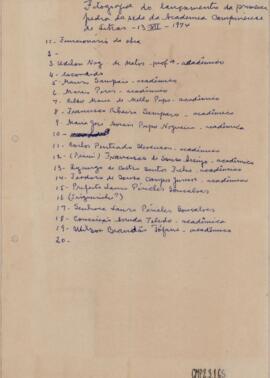 Fotografia do lançamento da primeira
pedra da sede da Academia Campinense
de Letras - 13 VII - 1974
1 - Funcionário da obra
2 -
3 de Matos - prof. - acadêmico
4
5 Mauro Sampaio - acadêmico
6 acadêmico
7 Maria de Mello Pupo - acadêmico
8 Francisco Ribeiro Sampaio - acadêmico
9 Maria José Morais Pupo Nogueira - acadêmica
10
11 - Carlos Penteado Stevenson - acadêmico
12 - Francisco de Souza - acadêmico
13 - de Castro Santos Filho - acadêmico
14 - Teodoro de Souza Campos Junior - acadêmico
15 - Prefeito Lauro Péricles Gonçalves
16
17 - Senhora Lauro Péricles Gonçalves
18 - Conceição Arruda Toledo - acadêmica
19 - Brandão Tófano - acadêmico
20 -